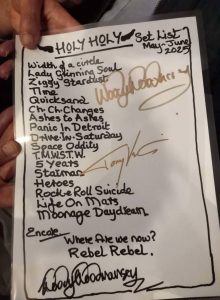 HOLY HOLY Set List
May-June
2025
Width of a circle
Lady Grinning Soul
Ziggy Stardust
Time
Quicksand
Ch.Ch.Changes
Ashes to Ashes
Panic In Detroit
Drive-In-Saturday
Space Oddity
T.M.W.S.T.W
5 Years
Starman
Heroes
Rock n Roll Suicide
Life On Mars
Moonage Daydream
Encore
Where Are we now?
Rebel Rebel.
Woody Woodmansey
Woody Woodmansey